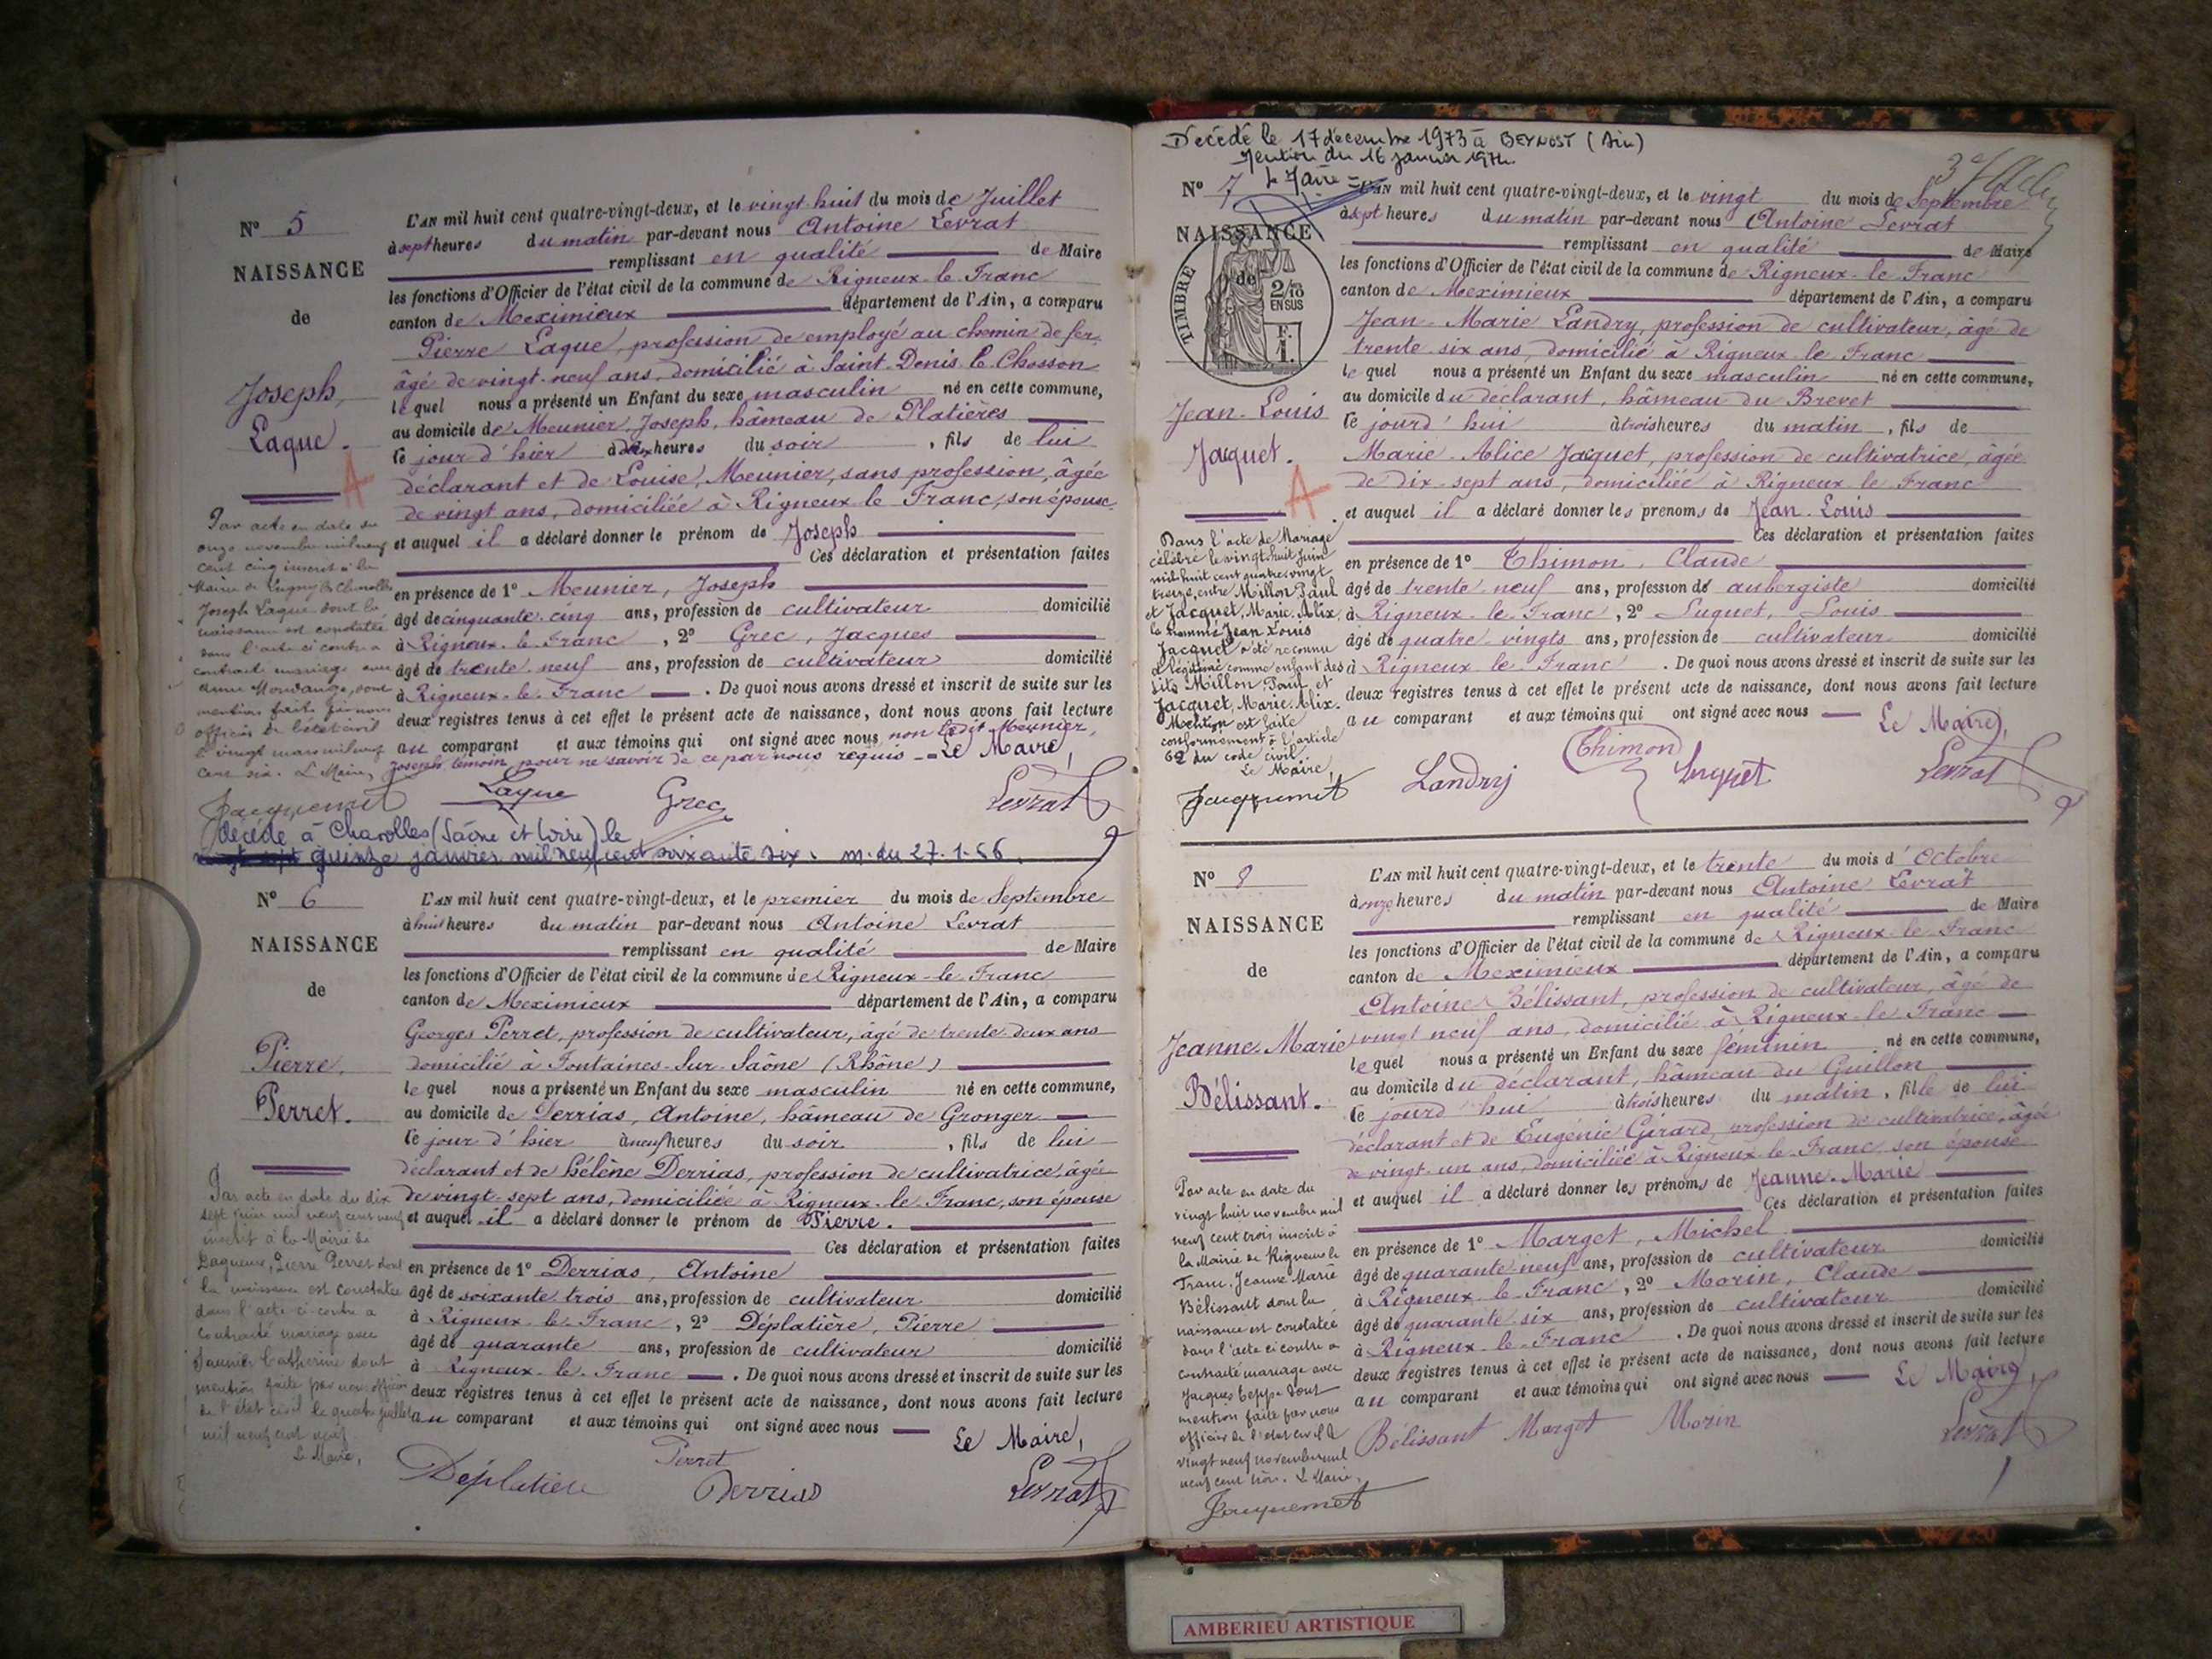 N° 5
NAISSANCE
de
Joseph
Laque.
A
L'AN mil huit cent quatre-vingt-deux, et le vingt huit du mois de Juillet
à sept heures du matin par-devant nous Antoine Levrat
remplissant en qualité de Maire
les fonctions d'Officier de l'état civil de la commune de Rigneux-le-Franc
canton de Meximieux département de l'Ain, a comparu
Pierre Laque, profession de employé au chemin de fer,
âgé de vingt-neuf ans, domicilié à Saint-Denis-le-Chosson
lequel nous a présenté un Enfant du sexe masculin né en cette commune,
au domicile de Meunier, Joseph, hâmeau de Platières
le jour d'hier à heures du soir, fils de lui
déclarant et de Louise Meunier, sans profession, âgée
de vingt ans, domiciliée à Rigneux-le-Franc, son épouse
et auquel il a déclaré donner le prénom de Joseph
Ces déclaration et présentation faites
en présence de 1° Meunier, Joseph
âgé de cinquante-cinq ans, profession de cultivateur domicilié
à Rigneux-le-Franc, 2° Grec, Jacques
âgé de trente-neuf ans, profession de cultivateur domicilié
à Rigneux-le-Franc. De quoi nous avons dressé et inscrit de suite sur les
deux registres tenus à cet effet le présent acte de naissance, dont nous avons fait lecture
au comparant et aux témoins qui ont signé avec nous non ledit Meunier,
Joseph témoin pour ne savoir de ce par nous requis - Le Maire,
Laque Grec Levrat
Par acte en date du
onze novembre mil neuf
cent cinq inscrit à la
Mairie de Lugny-les-Charolles
Joseph Laque dont la
naissance est constatée
dans l'acte ci contre a
contracté mariage avec
Anne, dont
mention faite par nous
officier de l'état civil
le vingt mars mil neuf
cent six. Le Maire,
Jacquemet
décédé à Charolles (Saône et Loire) le
quinze janvier mil neuf cent soixante six. m. du 27.1.66.
N° 6
NAISSANCE
de
Pierre
Perret.
L'AN mil huit cent quatre-vingt-deux, et le premier du mois de Septembre
à huit heures du matin par-devant nous Antoine Levrat
remplissant en qualité de Maire
les fonctions d'Officier de l'état civil de la commune de Rigneux-le-Franc
canton de Meximieux département de l'Ain, a comparu
Georges Perret, profession de cultivateur, âgé de trente-deux ans
domicilié à Fontaines-Sur-Saône (Rhône)
lequel nous a présenté un Enfant du sexe masculin né en cette commune,
au domicile de Derrias, Antoine, hâmeau de Gronger
le jour d'hier à neuf heures du soir, fils de lui
déclarant et de Hélène Derrias, profession de cultivatrice, âgée
de vingt-sept ans, domiciliée à Rigneux-le-Franc, son épouse
et auquel il a déclaré donner le prénom de Pierre.
Ces déclaration et présentation faites
en présence de 1° Derrias, Antoine
âgé de soixante trois ans, profession de cultivateur domicilié
à Rigneux-le-Franc, 2° Déplatière, Pierre
âgé de quarante ans, profession de cultivateur domicilié
à Rigneux-le-Franc. De quoi nous avons dressé et inscrit de suite sur les
deux registres tenus à cet effet le présent acte de naissance, dont nous avons fait lecture
au comparant et aux témoins qui ont signé avec nous
Le Maire,
Déplatière Perret Derrias Levrat
Par acte en date du dix
sept juin mil neuf cent neuf
inscrit à la Mairie de
Dagneux, Pierre Perret dont
la naissance est constatée
dans l'acte ci-contre a
contracté mariage avec
Catherine dont
mention faite par nous officier
de l'état civil le quatre juillet
mil neuf cent neuf
Le Maire,
Décédé le 17 décembre 1973 à BEYNOST (Ain)
Mention du 16 janvier 1974.
Le Maire
N° 7
NAISSANCE
de
TIMBRE
2/10
EN SUS
F.
1.
Jean-Louis
Jacquet.
A
L'AN mil huit cent quatre-vingt-deux, et le vingt du mois de Septembre
à sept heures du matin par-devant nous Antoine Levrat
remplissant en qualité de Maire
les fonctions d'Officier de l'état civil de la commune de Rigneux-le-Franc
canton de Meximieux département de l'Ain, a comparu
Jean-Marie Landry, profession de cultivateur, âgé de
trente-six ans, domicilié à Rigneux-le-Franc
lequel nous a présenté un Enfant du sexe masculin né en cette commune,
au domicile du déclarant, hâmeau du Brevet
le jourd'hui à trois heures du matin, fils de
Marie-Alice Jacquet, profession de cultivatrice, âgée
de dix-sept ans, domiciliée à Rigneux-le-Franc
et auquel il a déclaré donner les prénoms de Jean-Louis
Ces déclaration et présentation faites
en présence de 1° Thimon, Claude
âgé de trente-neuf ans, profession de aubergiste domicilié
à Rigneux-le-Franc, 2° Luquet, Louis
âgé de quatre-vingts ans, profession de cultivateur domicilié
à Rigneux-le-Franc. De quoi nous avons dressé et inscrit de suite sur les
deux registres tenus à cet effet le présent acte de naissance, dont nous avons fait lecture
au comparant et aux témoins qui ont signé avec nous Le Maire,
Landry Thimon Luquet Levrat
Dans l'acte de Mariage
célébré le vingt huit Juin
mil huit cent quatre vingt
treize, entre Millon Paul
et Jacquet, Marie Alix,
le nommé Jean Louis
Jacquet a été reconnu
et légitimé comme enfant des
dits Millon Paul et
Jacquet, Marie Alix.
Mention est faite
conformément à l'article
62 du code civil.
Le Maire,
Jacquemet
N° 8
NAISSANCE
de
Jeanne-Marie
Bélissant.
L'AN mil huit cent quatre-vingt-deux, et le trente du mois d'Octobre
à onze heures du matin par-devant nous Antoine Levrat
remplissant en qualité de Maire
les fonctions d'Officier de l'état civil de la commune de Rigneux-le-Franc
canton de Meximieux département de l'Ain, a comparu
Antoine Bélissant, profession de cultivateur, âgé de
vingt neuf ans, domicilié à Rigneux-le-Franc
lequel nous a présenté un Enfant du sexe féminin né en cette commune,
au domicile du déclarant, hâmeau du Guillon
le jourd'hui à trois heures du matin, fille de lui
déclarant et de Eugénie Girard, profession de cultivatrice, âgée
de vingt-un ans, domiciliée à Rigneux-le-Franc, son épouse
et auquel il a déclaré donner les prénoms de Jeanne-Marie
Ces déclaration et présentation faites
en présence de 1° Marget, Michel
âgé de quarante-neuf ans, profession de cultivateur domicilié
à Rigneux-le-Franc, 2° Morin, Claude
âgé de quarante-six ans, profession de cultivateur domicilié
à Rigneux-le-Franc. De quoi nous avons dressé et inscrit de suite sur les
deux registres tenus à cet effet le présent acte de naissance, dont nous avons fait lecture
au comparant et aux témoins qui ont signé avec nous Le Maire,
Bélissant Marget Morin Levrat
Par acte en date du
vingt huit novembre mil
neuf cent trois inscrit à
la Mairie de Rigneux le
Franc, Jeanne Marie
Bélissant dont la
naissance est constatée
dans l'acte ci contre a
contracté mariage avec
Jacques Teppe dont
mention faite par nous
officier de l'état civil le
vingt neuf novembre mil
neuf cent trois. Le Maire,
Jacquemet
AMBERIEU ARTISTIQUE